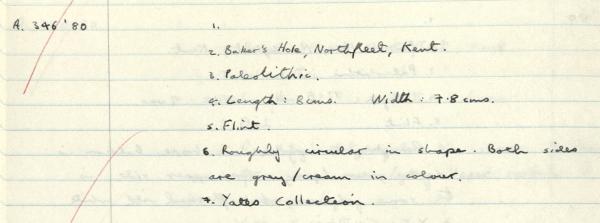 A. 346 '80
1.
2. Baker's Hole, Northfleet, Kent.
3. Paleolithic.
4. Length: 8cms. Width: 7.8cms.
5. Flint.
6. Roughly circular in shape. Both sides
are grey/cream in colour.
7. Yates Collection.